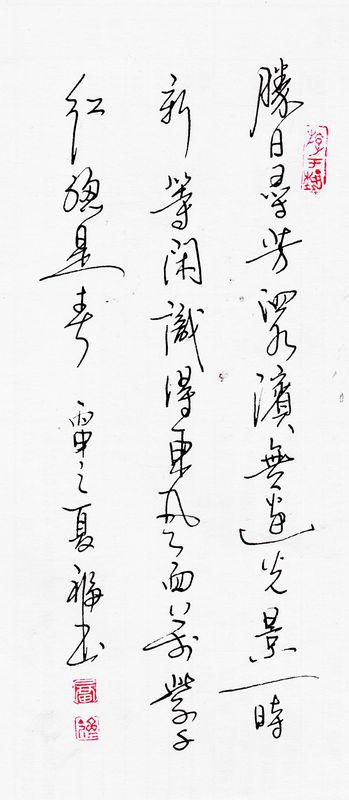 勝日尋芳泗水濱無邊光景一時
新等閑識得東风面萬紫千
紅總是春 丙申之夏 福书